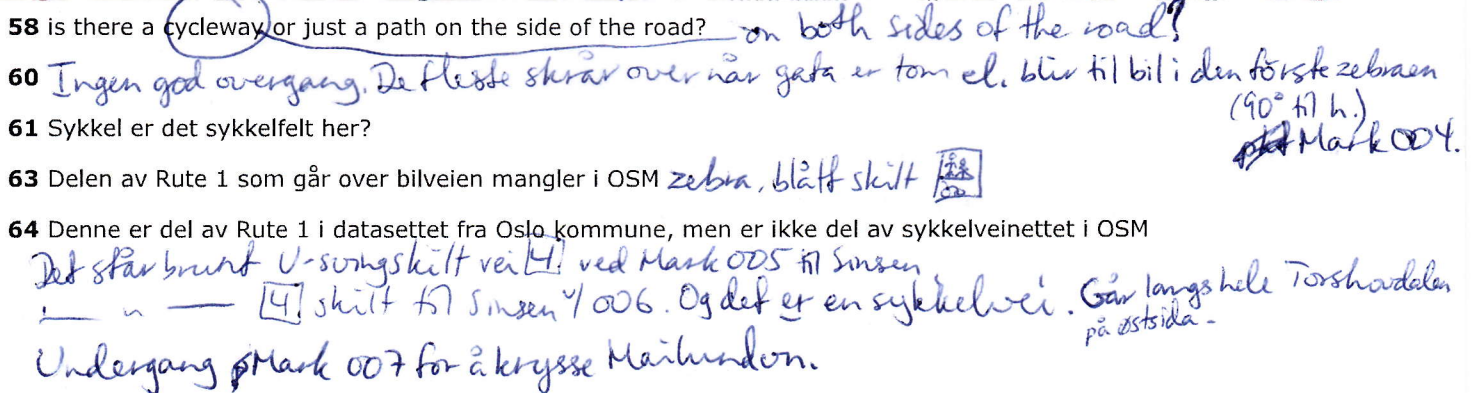 58 is there a cycleway or just a path on the side of the road? on both sides of the road?
60 Ingen god overgang. De fleste skrår over når gata er tom el. blir til bil i den förste zebraen
(90° til h.)
61 Sykkel er det sykkelfelt her? Mark 004.
63 Delen av Rute 1 som går over bilveien mangler i OSM zebra, blått skilt
64 Denne er del av Rute 1 i datasettet fra Oslo kommune, men er ikke del av sykkelveinettet i OSM
Det står brunt U-svingskilt vei 4 ved Mark 005 til Sinsen
" 4 skilt til Sinsen v/ 006. Og det er en sykkelvei. Går langs hele Torshovdalen
på østsida.
Undergang Mark 007 for å krysse Mailundvn.